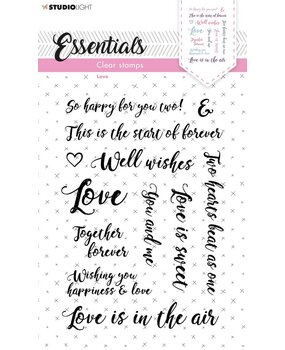 STUDIOLIGHT
Essentials
Clear stamps
Love
So happy for you two!
&
This is the start of forever
Well wishes
Love
Together
forever
Wishing you
happiness & love
You and me
Love is sweet
Two hearts beat as one
Love is in the air
Love is in the air